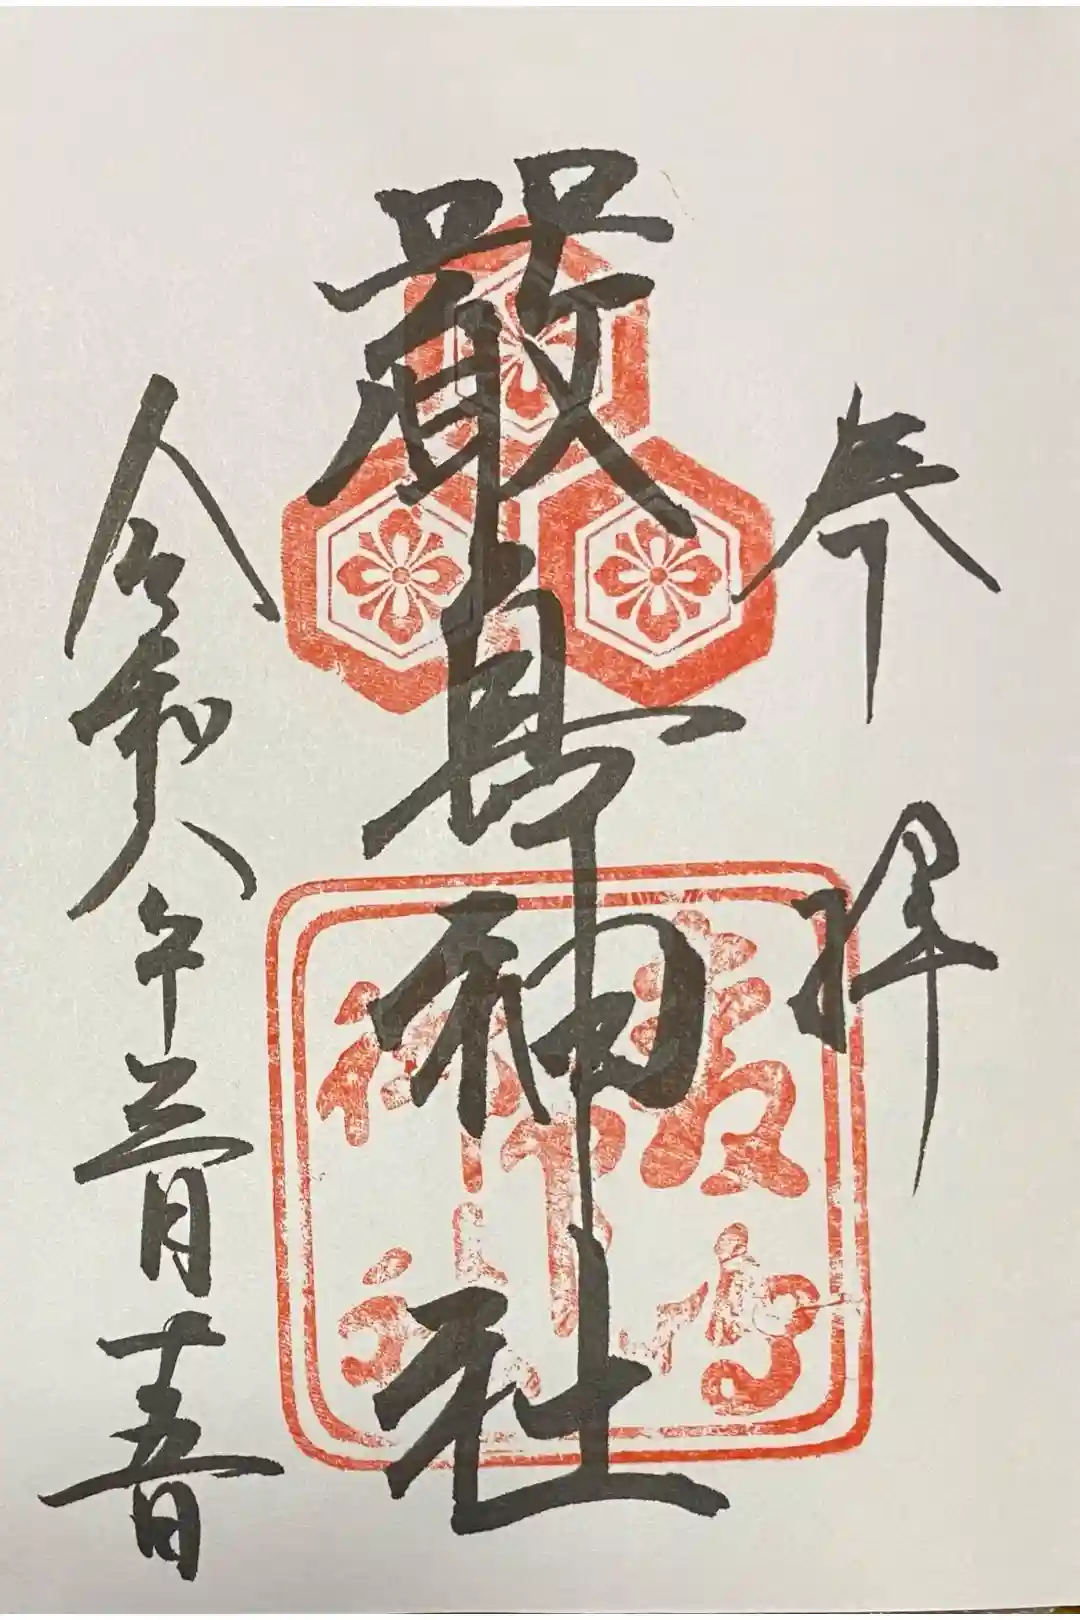 奉拝
厳島神社
令和八年三月十五日
嚴島神社